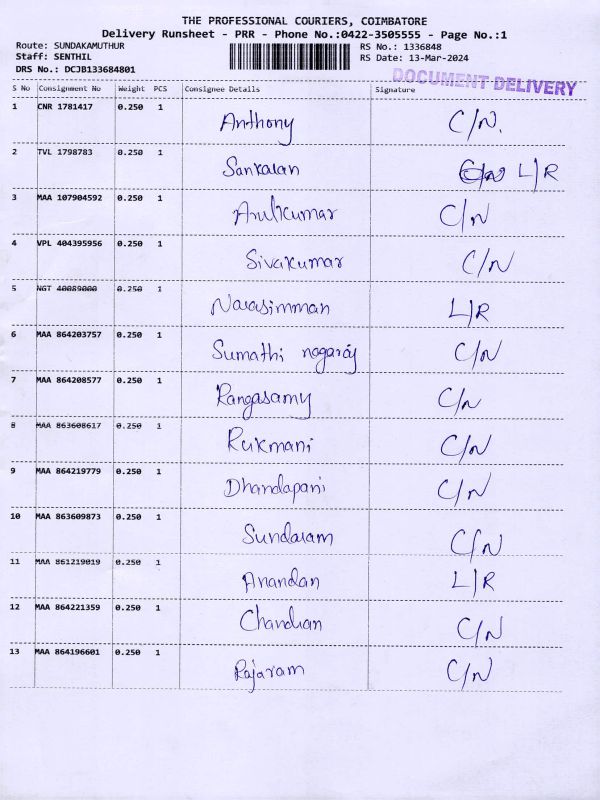 THE PROFESSIONAL COURIERS, COIMBATORE
Delivery Runsheet - PRR - Phone No.:0422-3505555 - Page No.:1
Route: SUNDAKAMUTHUR RS No.: 1336848
Staff: SENTHIL RS Date: 13-Mar-2024
DRS No.: DCJB133684801
DOCUMENT DELIVERY
S No Consignment No Weight PCS Consignee Details Signature
1 CNR 1781417 0.250 1 Anthony C/N.
2 TVL 1798783 0.250 1 Sankaran L/R
3 MAA 107904592 0.250 1 Arulkumar C/N
4 VPL 404395956 0.250 1 Sivakumar C/N
5 NGT 40089000 0.250 1 Narasimman L/R
6 MAA 864203757 0.250 1 Sumathi nagaraj C/N
7 MAA 864208577 0.250 1 Rangasamy C/N
8 MAA 863608617 0.250 1 Rukmani C/N
9 MAA 864219779 0.250 1 Dhandapani C/N
10 MAA 863609873 0.250 1 Sundaram C/N
11 MAA 861219019 0.250 1 Anandan L/R
12 MAA 864221359 0.250 1 Chandran C/N
13 MAA 864196601 0.250 1 Rajaram C/N